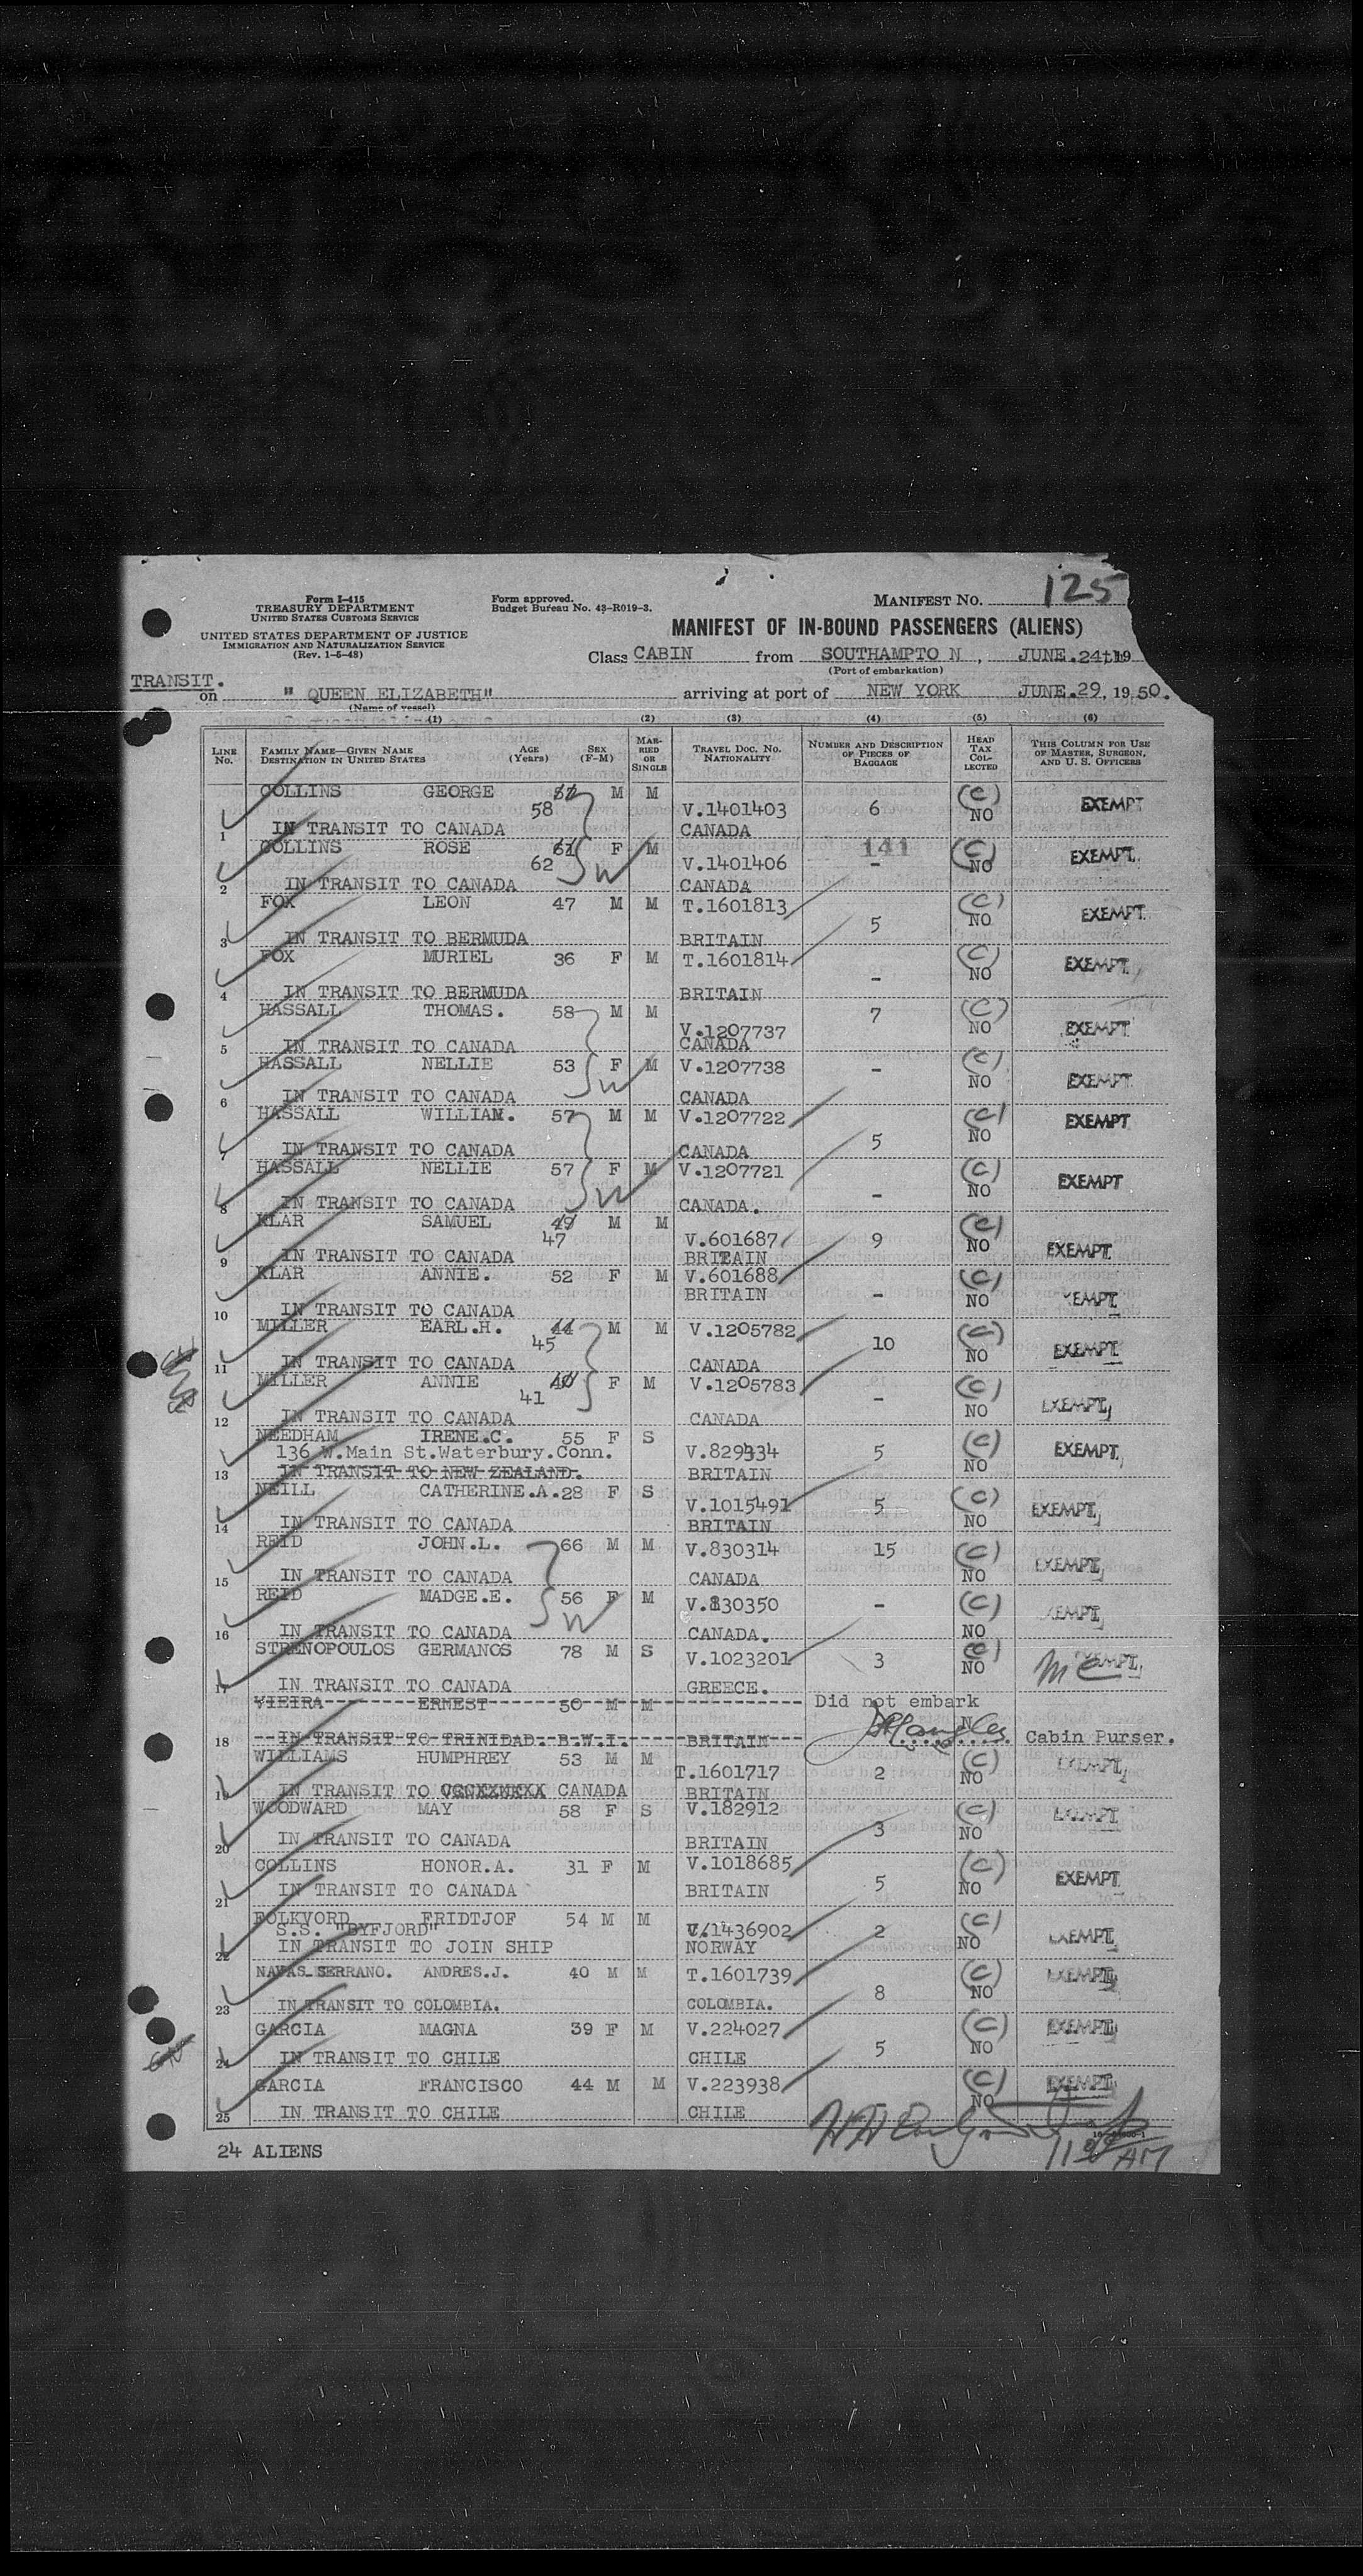 Form I-415
TREASURY DEPARTMENT
UNITED STATES CUSTOMS SERVICE
UNITED STATES DEPARTMENT OF JUSTICE
IMMIGRATION AND NATURALIZATION SERVICE
(Rev. 1-5-48)
Form approved.
Budget Bureau No. 43-R019-3.
MANIFEST NO. 125
MANIFEST OF IN-BOUND PASSENGERS (ALIENS)
Class CABIN from SOUTHAMPTO N , JUNE.24th 19
(Port of embarkation)
TRANSIT.
on " QUEEN ELIZABETH" arriving at port of NEW YORK JUNE.29, 1950.
(Name of vessel)
(1) (2) (3) (4) (5) (6)
LINE No. FAMILY NAME—GIVEN NAME DESTINATION IN UNITED STATES AGE (Years) SEX (F-M) MARRIED OR SINGLE TRAVEL DOC. NO. NATIONALITY NUMBER AND DESCRIPTION OF PIECES OF BAGGAGE HEAD TAX COLLECTED THIS COLUMN FOR USE OF MASTER, SURGEON, AND U. S. OFFICERS
COLLINS GEORGE 58 M M V.1401403 6 (C) NO EXEMPT
1 IN TRANSIT TO CANADA CANADA
COLLINS ROSE 61 62 F M V.1401406 141 - (C) NO EXEMPT
2 IN TRANSIT TO CANADA CANADA
FOX LEON 47 M M T.1601813 5 (C) NO EXEMPT
3 IN TRANSIT TO BERMUDA BRITAIN
FOX MURIEL 36 F M T.1601814 - (C) NO EXEMPT
4 IN TRANSIT TO BERMUDA BRITAIN
HASSALL THOMAS. 58 M M V.1207737 7 (C) NO EXEMPT
5 IN TRANSIT TO CANADA CANADA
HASSALL NELLIE 53 F M V.1207738 - (C) NO EXEMPT
6 IN TRANSIT TO CANADA CANADA
HASSALL WILLIAM. 57 M M V.1207722 5 (C) NO EXEMPT
7 IN TRANSIT TO CANADA CANADA
HASSALL NELLIE 57 F M V.1207721 - (C) NO EXEMPT
8 IN TRANSIT TO CANADA CANADA.
KLAR SAMUEL 47 M M V.601687 9 (C) NO EXEMPT
9 IN TRANSIT TO CANADA BRITAIN
KLAR ANNIE. 52 F M V.601688 - (C) NO EXEMPT
10 IN TRANSIT TO CANADA BRITAIN
MILLER EARL.H. 44 45 M M V.1205782 10 (C) NO EXEMPT
11 IN TRANSIT TO CANADA CANADA
MILLER ANNIE 40 41 F M V.1205783 - (C) NO EXEMPT
12 IN TRANSIT TO CANADA CANADA
NEEDHAM IRENE.C. 55 F S V.829334 5 (C) NO EXEMPT
136 W.Main St.Waterbury.Conn.
13 IN TRANSIT TO NEW ZEALAND. BRITAIN
NEILL CATHERINE.A. 28 F S V.1015491 5 (C) NO EXEMPT
14 IN TRANSIT TO CANADA BRITAIN
REID JOHN.L. 66 M M V.830314 15 (C) NO EXEMPT
15 IN TRANSIT TO CANADA CANADA
REID MADGE.E. 56 F M V.830350 - (C) NO EXEMPT
16 IN TRANSIT TO CANADA CANADA.
STRENOPOULOS GERMANOS 78 M S V.1023201 3 (C) NO EXEMPT
17 IN TRANSIT TO CANADA GREECE.
VIEIRA ERNEST 50 M M Did not embark
18 IN TRANSIT TO TRINIDAD. B.W.I. BRITAIN Cabin Purser.
WILLIAMS HUMPHREY 53 M M T.1601717 2 (C) NO EXEMPT
19 IN TRANSIT TO CANADA BRITAIN
WOODWARD MAY 58 F S V.182912 3 (C) NO EXEMPT
20 IN TRANSIT TO CANADA BRITAIN
COLLINS HONOR.A. 31 F M V.1018685 5 (C) NO EXEMPT
21 IN TRANSIT TO CANADA BRITAIN
FOLKVORD FRIDTJOF 54 M M V.1436902 2 (C) NO EXEMPT
S.S. "BYFJORD"
22 IN TRANSIT TO JOIN SHIP NORWAY
NAVAS-SERRANO. ANDRES.J. 40 M M T.1601739 8 (C) NO EXEMPT
23 IN TRANSIT TO COLOMBIA. COLOMBIA.
GARCIA MAGNA 39 F M V.224027 5 (C) NO EXEMPT
24 IN TRANSIT TO CHILE CHILE
GARCIA FRANCISCO 44 M M V.223938 (C) NO EXEMPT
25 IN TRANSIT TO CHILE CHILE
24 ALIENS
AM